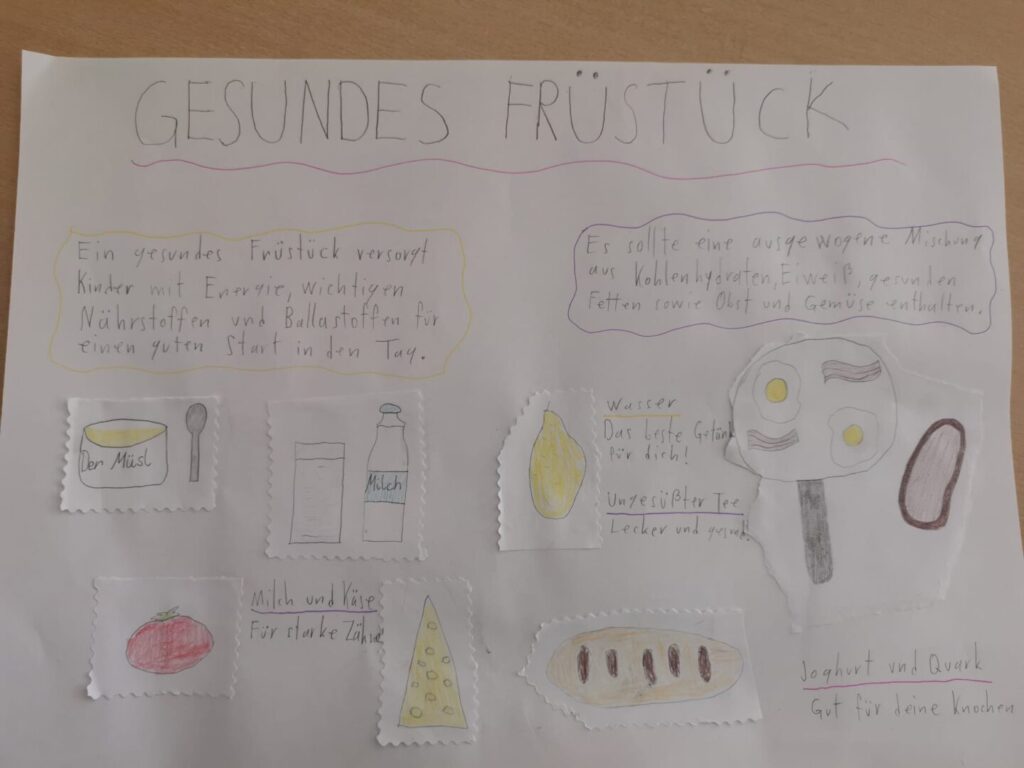 GESUNDES FRÜSTÜCK
Ein gesundes Früstück versorgt
Kinder mit Energie, wichtigen
Nährstoffen und Ballastoffen für
einen guten Start in den Tag.
Es sollte eine ausgewogene Mischung
aus Kohlenhydraten, Eiweiß, gesunden
Fetten sowie Obst und Gemüse enthalten.
Der Müsl
Milch
Wasser
Das beste Getränk
für dich!
Ungesüßter Tee
Lecker und gesund.
Milch und Käse
Für starke Zähne
Joghurt und Quark
Gut für deine Knochen